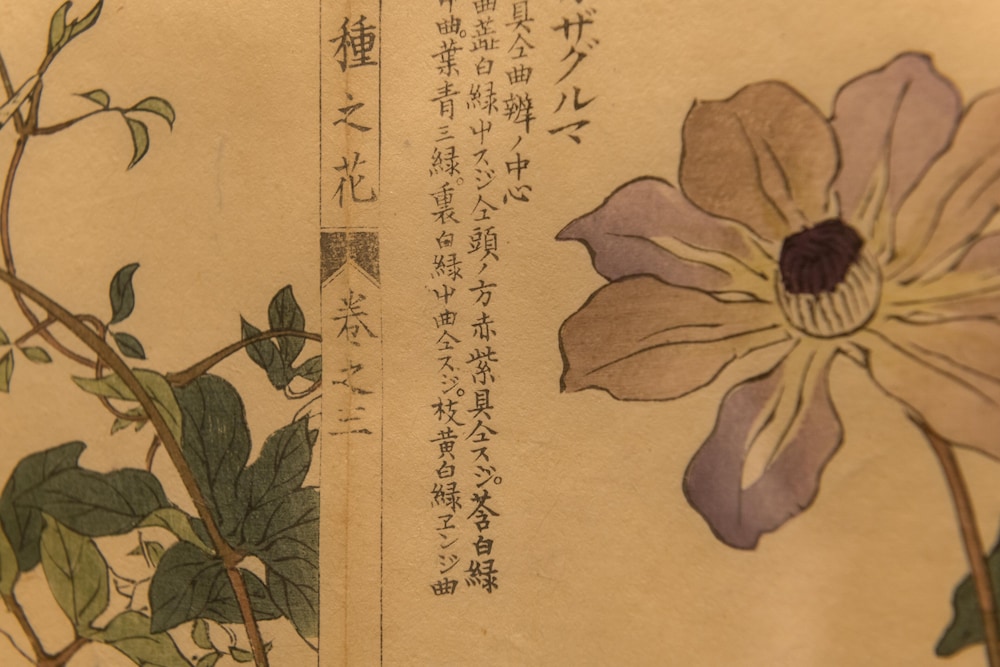 ザグルマ
具仝曲辨ノ中心
曲蕋白緑中スジ仝頭ノ方赤紫具仝スジ。莟白緑
曲。葉青三緑。裏白緑中曲仝スジ。枝黄白緑ヱンジ曲
種之花
巻之三